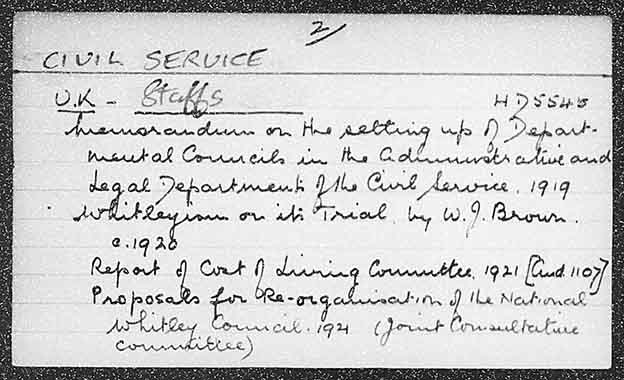 2/
CIVIL SERVICE
U.K - Staffs HD5545
Memorandum on the setting up of Depart-
mental Councils in the administrative and
Legal Departments of the Civil Service. 1919
Whitleyism on its Trial by W.J. Brown.
c.1920
Report of Cost of Living Committee, 1921 [Cmd 1107]
Proposals for Re-organisation of the National
Whitley Council. 1921 (Joint Consultative
committee)